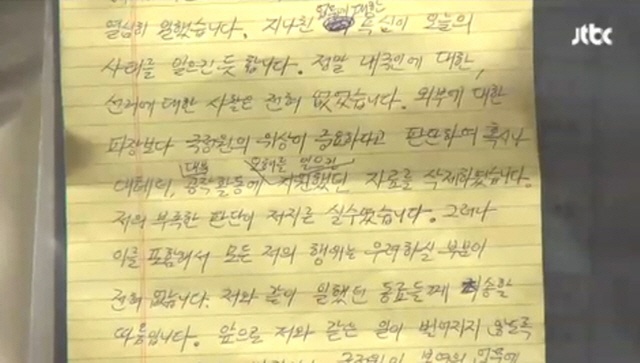 jtbc
업무에 대한
열심히 일했습니다. 지나친 욕심이 오늘의
사태를 일으킨 듯 합니다. 정말 내국인에 대한,
선거에 대한 사찰은 전혀 없었습니다. 외부에 대한
파장보다 국정원의 위상이 중요하다고 판단하여 혹시나
대북 오해를 일으킨
대테러, 공작활동에 지원했던 자료를 삭제하였습니다.
저의 부족한 판단이 저지른 실수였습니다. 그러나
이를 포함해서 모든 저의 행위는 우려하실 부분이
전혀 없습니다. 저와 같이 일했던 동료들께 죄송할
따름입니다. 앞으로 저와 같은 일이 번어지지 않도록
국정원이 본연의 업무에